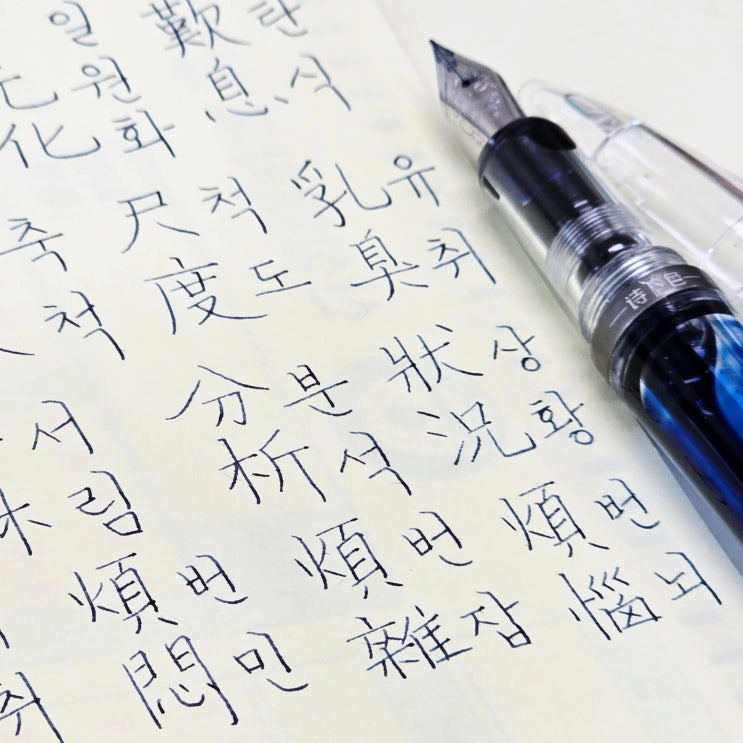 일
원 歎 탄
化 화 息 식
축 尺 척 乳 유
척 度 도 臭 취
서 分 분 狀 상
림 析 석 況 황
煩 번 煩 번 煩 번
취 悶 민 雜 잡 惱 뇌